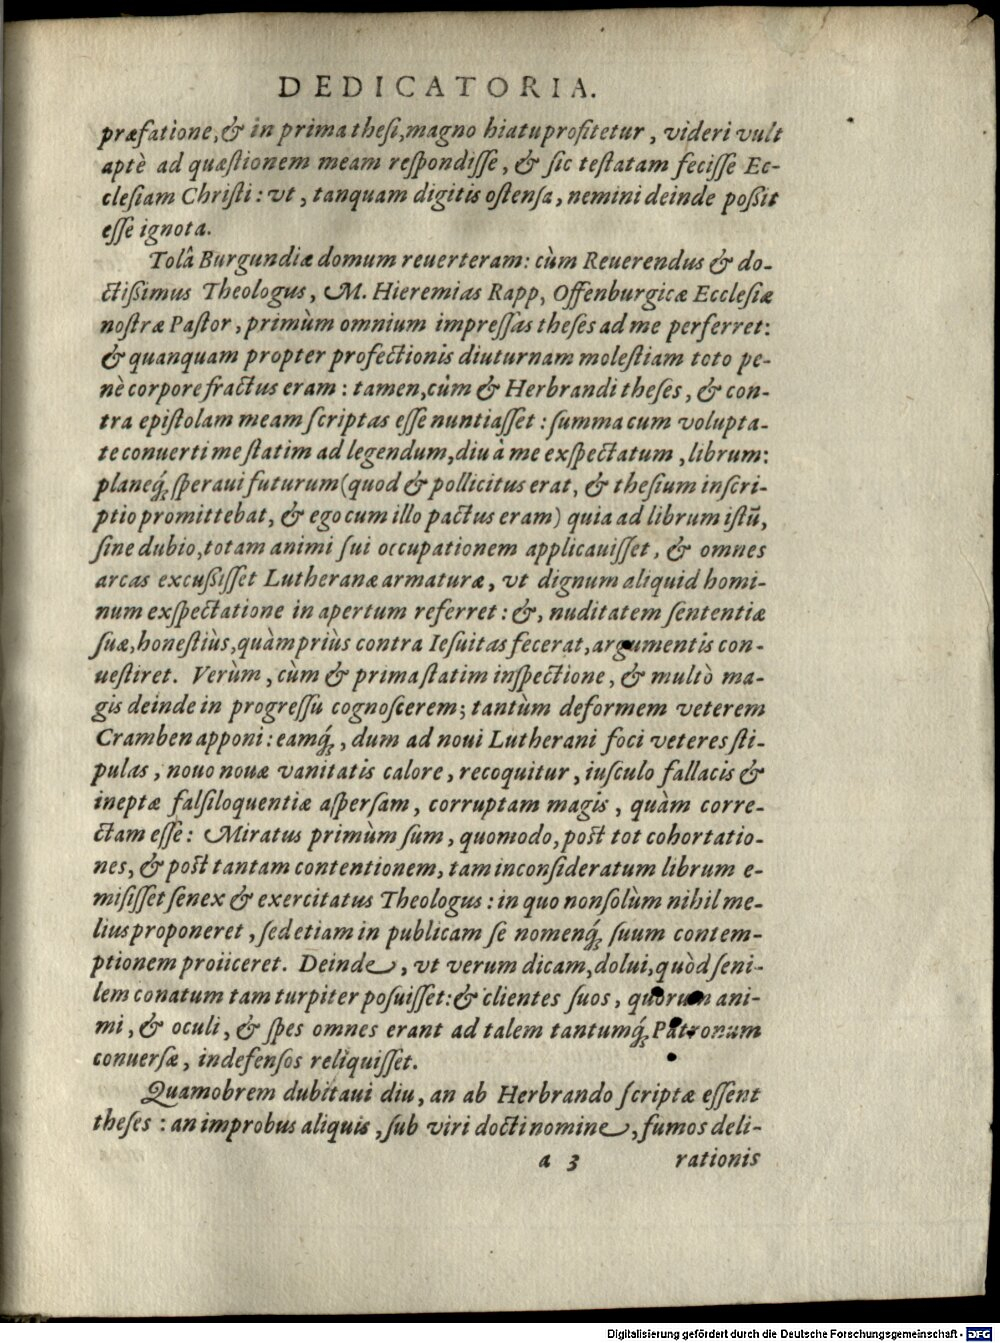 DEDICATORIA.
præfatione, & in prima thesi, magno hiatu profitetur, videri vult
aptè ad quæstionem meam respondisse, & sic testatam fecisse Ec-
clesiam Christi: vt, tanquam digitis ostensa, nemini deinde poßit
esse ignota.
Tolâ Burgundiæ domum reuerteram: cùm Reuerendus & do-
ctißimus Theologus, M. Hieremias Rapp, Offenburgicæ Ecclesiæ
nostræ Pastor, primùm omnium impressas theses ad me perferret:
& quanquam propter profectionis diuturnam molestiam toto pe-
nè corpore fractus eram: tamen, cùm & Herbrandi theses, & con-
tra epistolam meam scriptas esse nuntiasset: summa cum volupta-
te conuerti me statim ad legendum, diu à me exspectatum, librum:
planeq́; speraui futurum (quod & pollicitus erat, & thesium inscri-
ptio promittebat, & ego cum illo pactus eram) quia ad librum istū,
sine dubio, totam animi sui occupationem applicauisset, & omnes
arcas excußisset Lutheranæ armaturæ, vt dignum aliquid homi-
num exspectatione in apertum referret: &, nuditatem sententiæ
suæ, honestiùs, quàm priùs contra Iesuitas fecerat, argumentis con-
uestiret. Verùm, cùm & prima statim inspectione, & multò ma-
gis deinde in progressu cognoscerem; tantùm deformem veterem
Cramben apponi: eamq́;, dum ad noui Lutherani foci veteres sti-
pulas, nouo nouæ vanitatis calore, recoquitur, iusculo fallacis &
ineptæ falsiloquentiæ aspersam, corruptam magis, quàm corre-
ctam esse: Miratus primùm sum, quomodo, post tot cohortatio-
nes, & post tantam contentionem, tam inconsideratum librum e-
misisset senex & exercitatus Theologus: in quo non solùm nihil me-
lius proponeret, sed etiam in publicam se nomenq́; suum contem-
ptionem proiiceret. Deinde, vt verum dicam, dolui, quòd seni-
lem conatum tam turpiter posuisset: & clientes suos, quorum ani-
mi, & oculi, & spes omnes erant ad talem tantumq́; Patronum
conuersæ, indefensos reliquisset.
Quamobrem dubitaui diu, an ab Herbrando scriptæ essent
theses: an improbus aliquis, sub viri docti nomine, fumos deli-
a 3 rationis
Digitalisierung gefördert durch die Deutsche Forschungsgemeinschaft - DFG